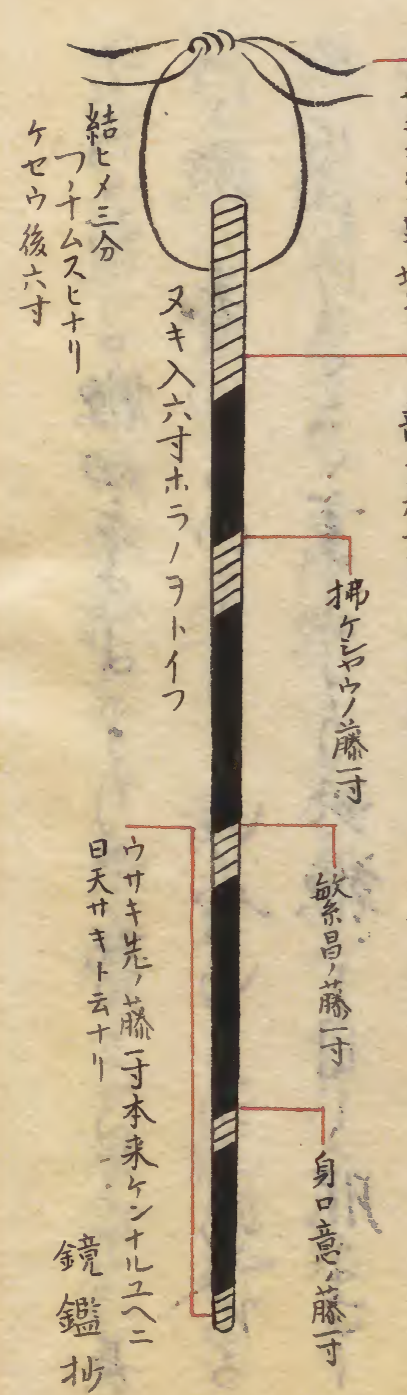 拂ケシヤウノ藤一寸
繁昌ノ藤一寸
身口意ノ藤一寸
ヌキ入六寸ホラノヲトイフ
結ヒメ三分
フチムスヒナリ
ケセウ後六寸
ウサキ先ノ藤一寸本来ケンナルユヘニ
日天サキト云ナリ
鏡鑑抄